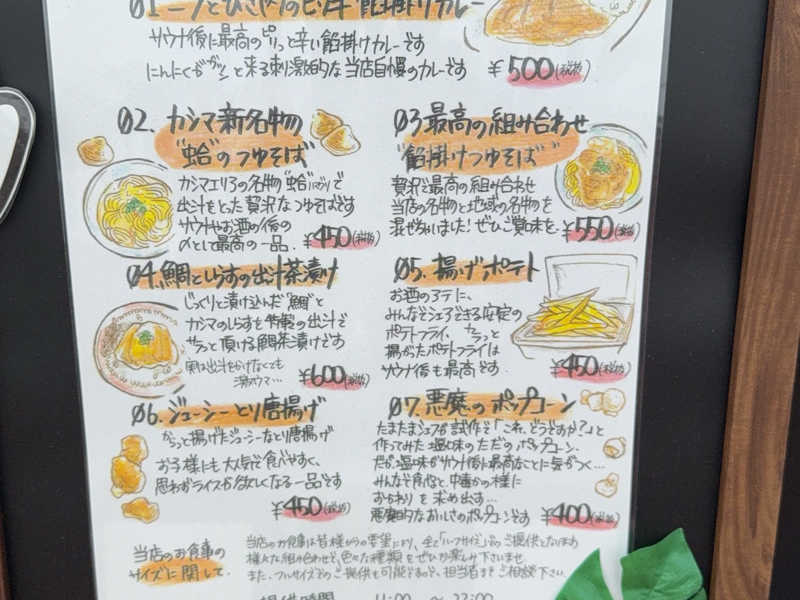 サウナ後に最高のピリっと辛い餡掛けカレーです
にんにくがガツンと来る刺激的な当店自慢のカレーです ¥500(税抜)
02. カシマ新名物
"蛤"のつゆそば"
カシマエリアの名物"蛤"で
出汁をとった贅沢なつゆそばです
サウナやお酒の後の
〆として最高の一品。 ¥450(税抜)
03 最高の組み合わせ
"餡掛けつゆそば"
贅沢で最高の組み合わせ
当店の名物と地域の名物を
混ぜちゃいました!ぜひご賞味を。 ¥550(税抜)
04. 鯛としらすの出汁茶漬け
じっくりと漬け込んだ"鯛"と
カシマのしらすを特製の出汁で
サラっと頂ける鯛茶漬けです
実は出汁をかけなくても
激ウマ… ¥600(税抜)
05. 揚げポテト
お酒のアテに、
みんなでシェアできる安定の
ポテトフライ。カラっと
揚がったポテトフライは
サウナ後も最高です。 ¥450(税抜)
06. ジューシーとり唐揚げ
からっと揚げたジューシーなとり唐揚げ
お子様にも大人気で食べやすく、
思わずライスが欲しくなる一品です
¥450(税抜)
07. 悪魔のポップコーン
たまたまシェフが試作で「これ、どうですか?」と
作ってみた塩味のただのポップコーン。
だが塩味がサウナ後に最高なことに気がつく…
みんな食べると、中毒かの様に
おかわりを求め出す…
悪魔的なおいしさのポップコーンです ¥400(税抜)
当店のお食事の
サイズに関して
当店のお食事は皆様からの要望により、全て「ハーフサイズ」でのご提供となります
様々な組み合わせで、色々な種類をぜひお楽しみ下さいませ
また、フルサイズでのご提供も可能ですので、担当者までご相談下さい。
提供時間 11:00 〜 22:00